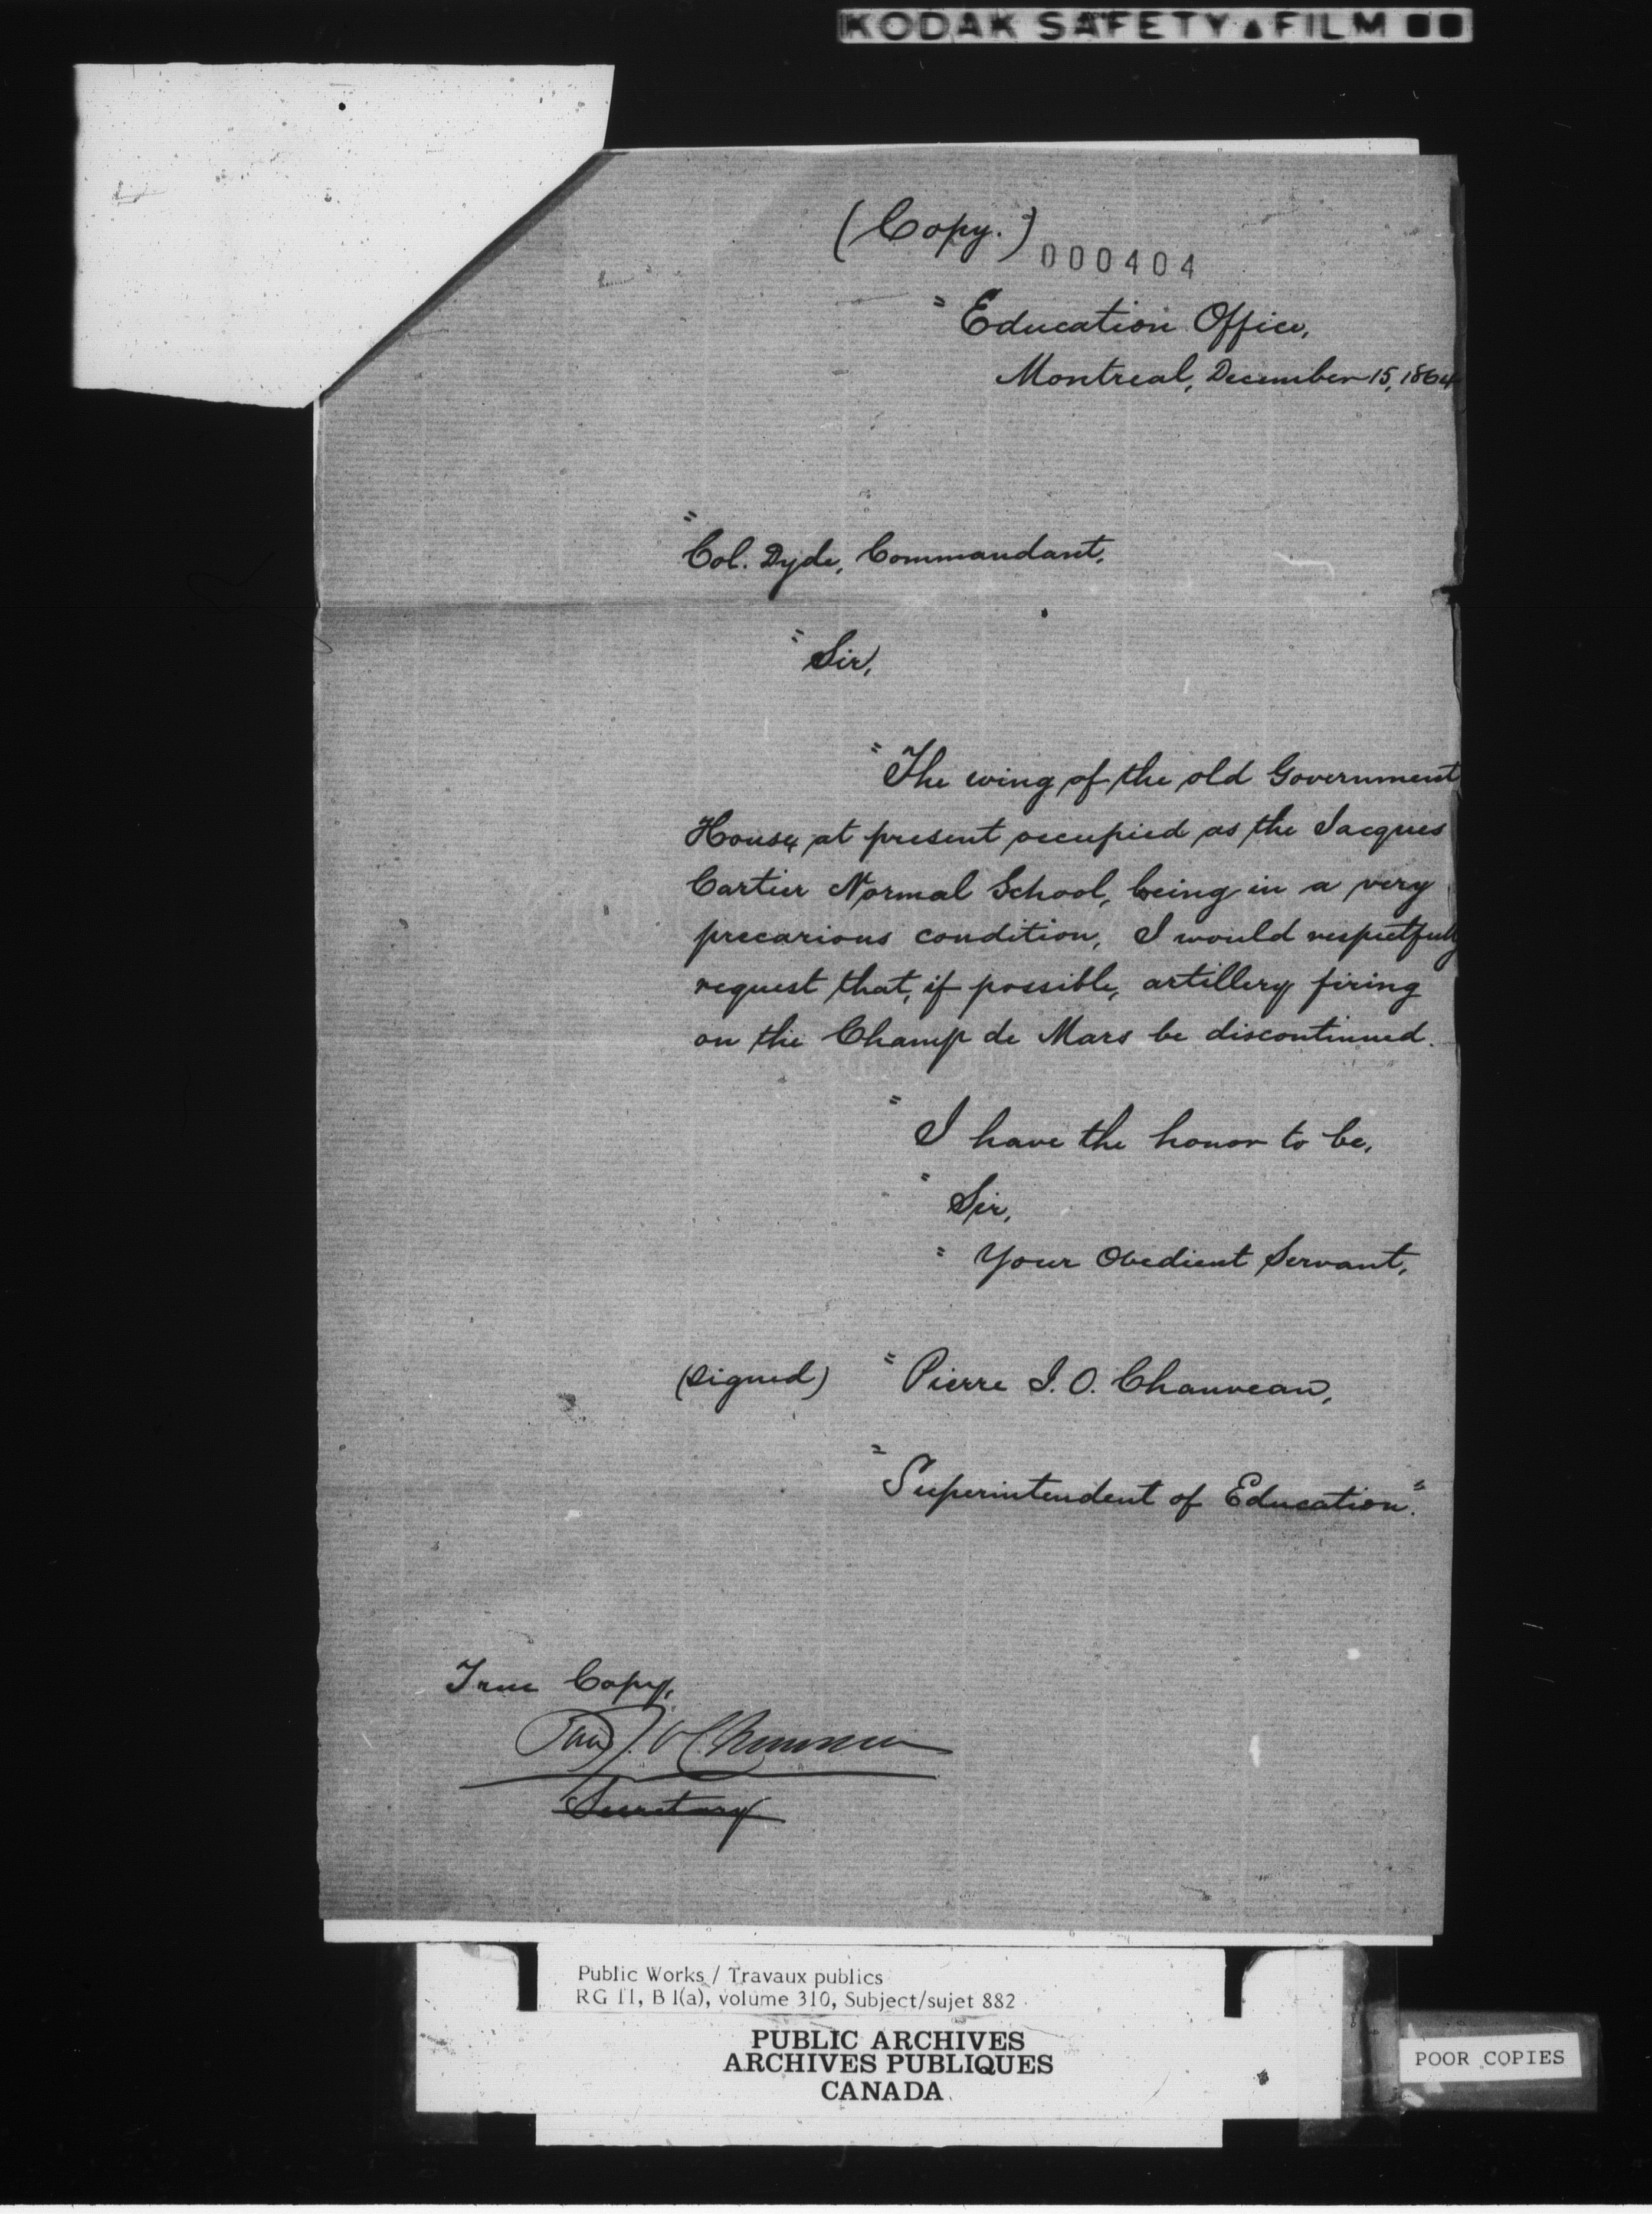 KODAK SAFETY FILM
(Copy.)
000404
"Education Office,
Montreal, December 15, 1864
"Col. Dyde, Commandant,
"Sir,
"The wing of the old Government
House, at present occupied as the Jacques
Cartier Normal School, being in a very
precarious condition, I would respectfully
request that, if possible, artillery firing
on the Champ de Mars be discontinued.
"I have the honor to be,
"Sir,
"Your Obedient Servant,
(signed) "Pierre J. O. Chauveau,
"Superintendent of Education."
True Copy,
Secretary
Public Works / Travaux publics
RG 11, B 1(a), volume 310, Subject/sujet 882
PUBLIC ARCHIVES
ARCHIVES PUBLIQUES
CANADA
POOR COPIES